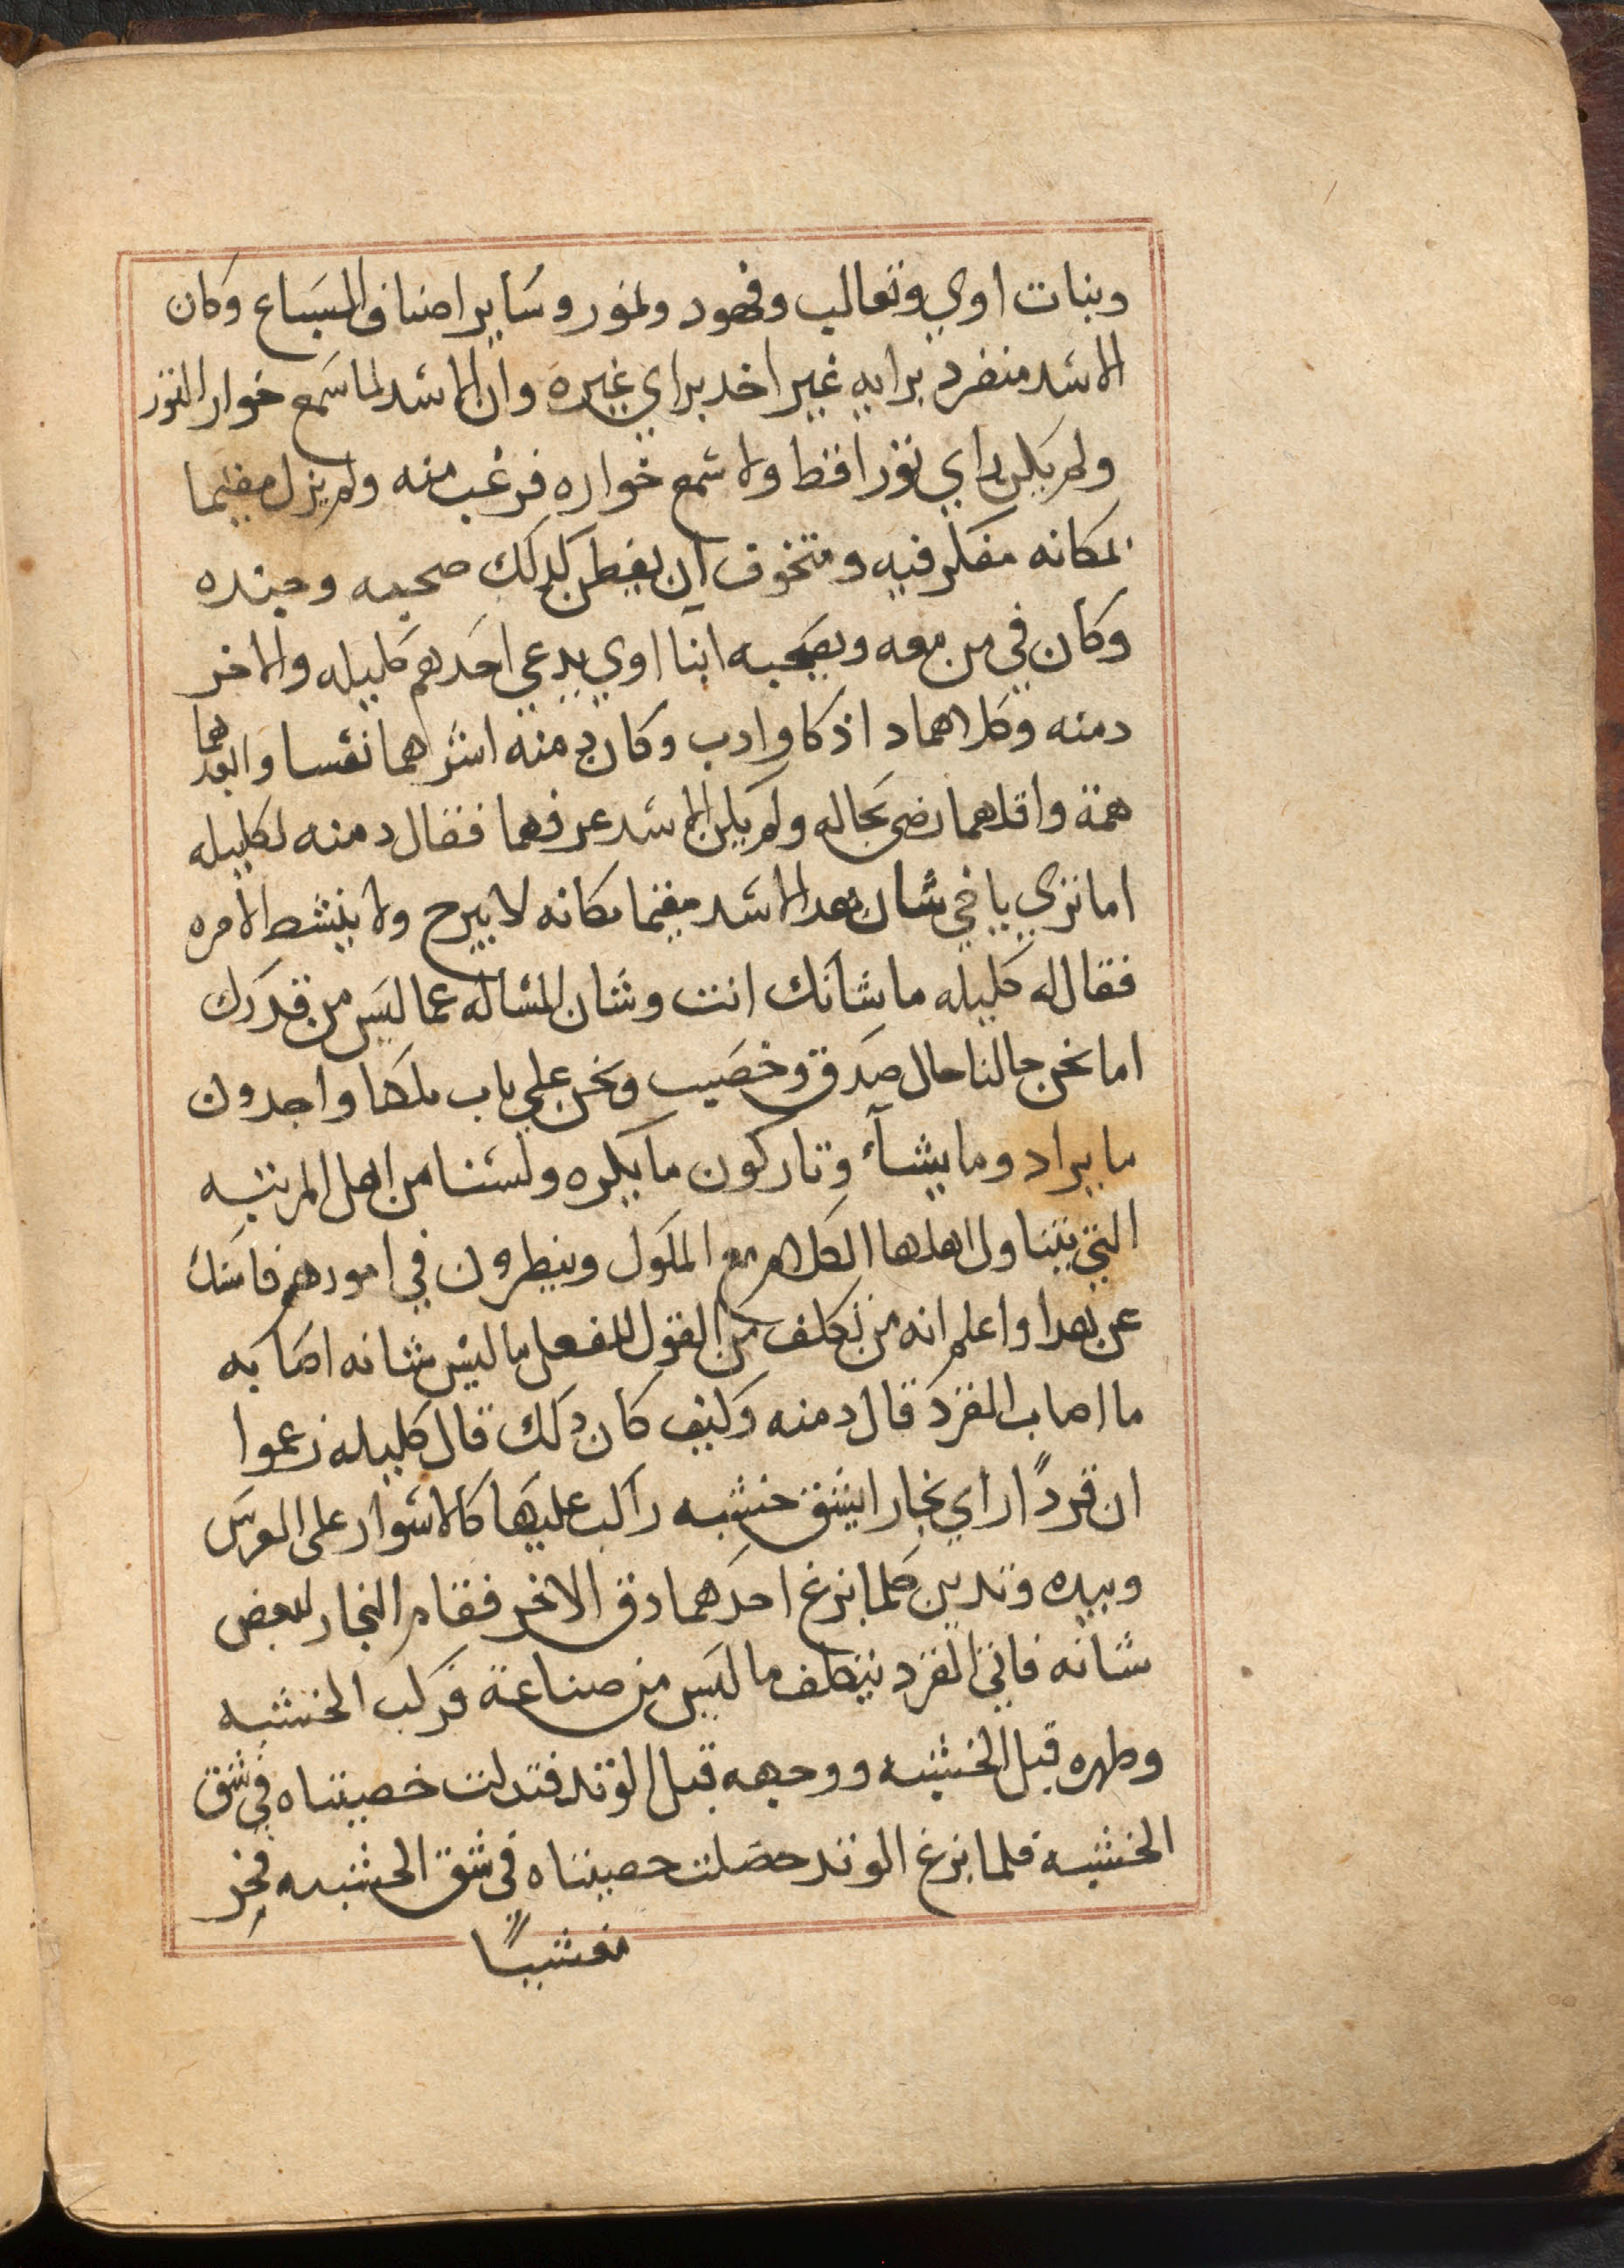 وبنات اوي وثعالب وفهود ونمور وساير اصناف السباع وكان
الاسد منفرد برايه غير اخد براي غيره وان الاسد لما سمع خوار الثور
ولم يكن راي ثورا قط ولا سمع خواره فرعب منه ولم يزل مقيما
بمكانه مفكر فيه ومتخوف ان يفطن لدلك صحبه وجنده
وكان في من معه وبصحبه ابنا اوي يدعي احدهم كليله والاخر
دمنه وكلاهما داذكا وادب وكان دمنه اشرهما نفسا وابعدهما
همة واقلهما رضى بحاله ولم يكن الاسد عرفهما فقال دمنه لكليله
اما تري ياخي شان هدا الاسد مقيما مكانه لا يبرح ولا ينشط لامره
فقال له كليله ما شانك انت وشان المساله عما ليس من قدرك
اما نحن حالنا حال صدق وخصيب ونحن علي باب ملكها واجدون
ما يراد وما يشآء وتاركون ما يكره ولسنا من اهل المرتبه
التي يتناول اهلها الكلام مع الملوك وينظرون في امورهم فاسك
عن هدا واعلم انه من تكلف من القول الفعل ما ليس شانه اصابه
ما اصاب القرد قال دمنه وكيف كان دلك قال كليله زعموا
ان قردًا راي نجارا يشق خشبه راكب عليها كالاسوار على الفرس
وبيده وتدين كلما نزع احدهما دق الاخر فقام النجار لبعض
شانه فاتي القرد يتكلف ما ليس من صناعة فركب الخشبه
وظهره قبل الخشبه ووجهه قبل الوتد فتدلت خصيتاه في شق
الخشبه فلما نزع الوتد حصلت خصيتاه في شق الخشبه فخر
مغشيًا